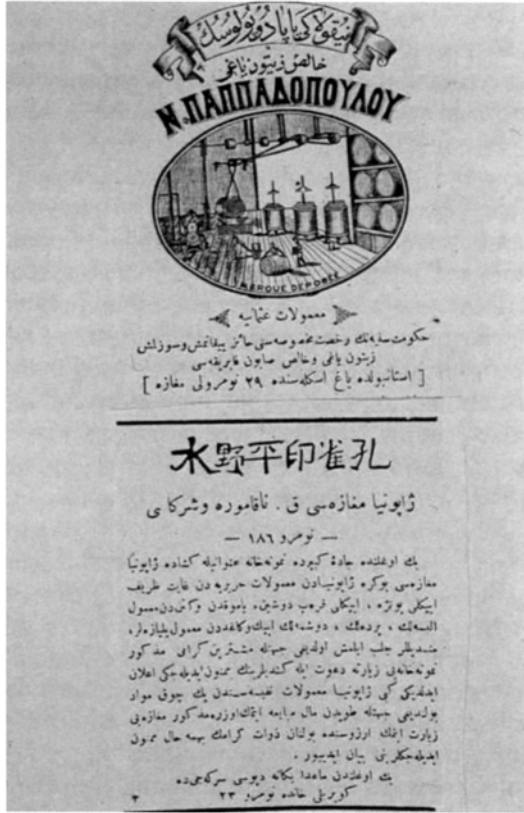 نيقولاكى پاپادوپولوسك
خالص زيتون ياغى
Ν.ΠΑΠΠΑΔΟΠΟΥΛΟΥ
MARQUE DEPOSÉE
معمولات عثمانيه
حكومت سنيه‌نك رخصت مخصوصه‌سنى حائز ييقانمش وسوزلمش
زيتون ياغى وخالص صابون فابريقه‌سى
[ استانبولده ياغ اسكله‌سنده ٢٩ نومرولى مغازه ]
水野平印雀孔
ژاپونيا مغازه‌سى ق . ناقاموره وشركاسى
— نومرو ١٨٦ —
بك اوغلنده جادۀ كبيرده نمونه‌خانه عنوانيله كشاده ژاپونيا
مغازه‌سى بوكره ژاپونيادن معمولات حريريه‌دن غايت ظريف
ايپكلى ، ايپكلى قره‌پ دوشين، پاموقدن معمول
البسه‌لك ، پرده‌لك ، دوشمه‌لك ايپك وكاغددن معمول يلپازه‌لر،
جلب ايلمش اولديغى جهتله مشترين كرامى مذكور
نمونه‌خانه‌يى زيارته دعوت ايله كنديلرينك ممنون ايديله‌جكى اعلان
ايدلديكى كبى ژاپونيا معمولات نفيسه‌سندن پك چوق موارد
بولنديغى جهتله طوپدن مال مبايعه ايتمك اوزره مذكور مغازه‌يى
زيارت ايتمك آرزوسنده بولنان ذوات كرامك بهمه حال ممنون
ايديله‌جكلرينى بيان ايدييور .
بك اوغلندن ماعدا يكانه ده‌پوسى سركه‌جيده
كوپريلى خاننده نومرو ٢٣
٣